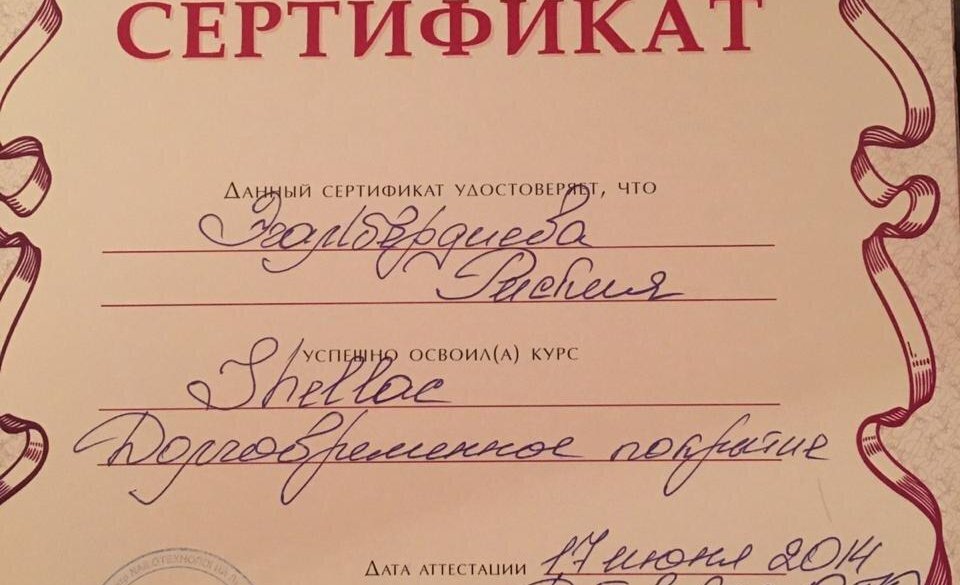 СЕРТИФИКАТ
Данный сертификат удостоверяет, что
Эгамбердиева
успешно освоил(а) курс
Shellac
Долговременное покрытие
Дата аттестации 17 июня 2014